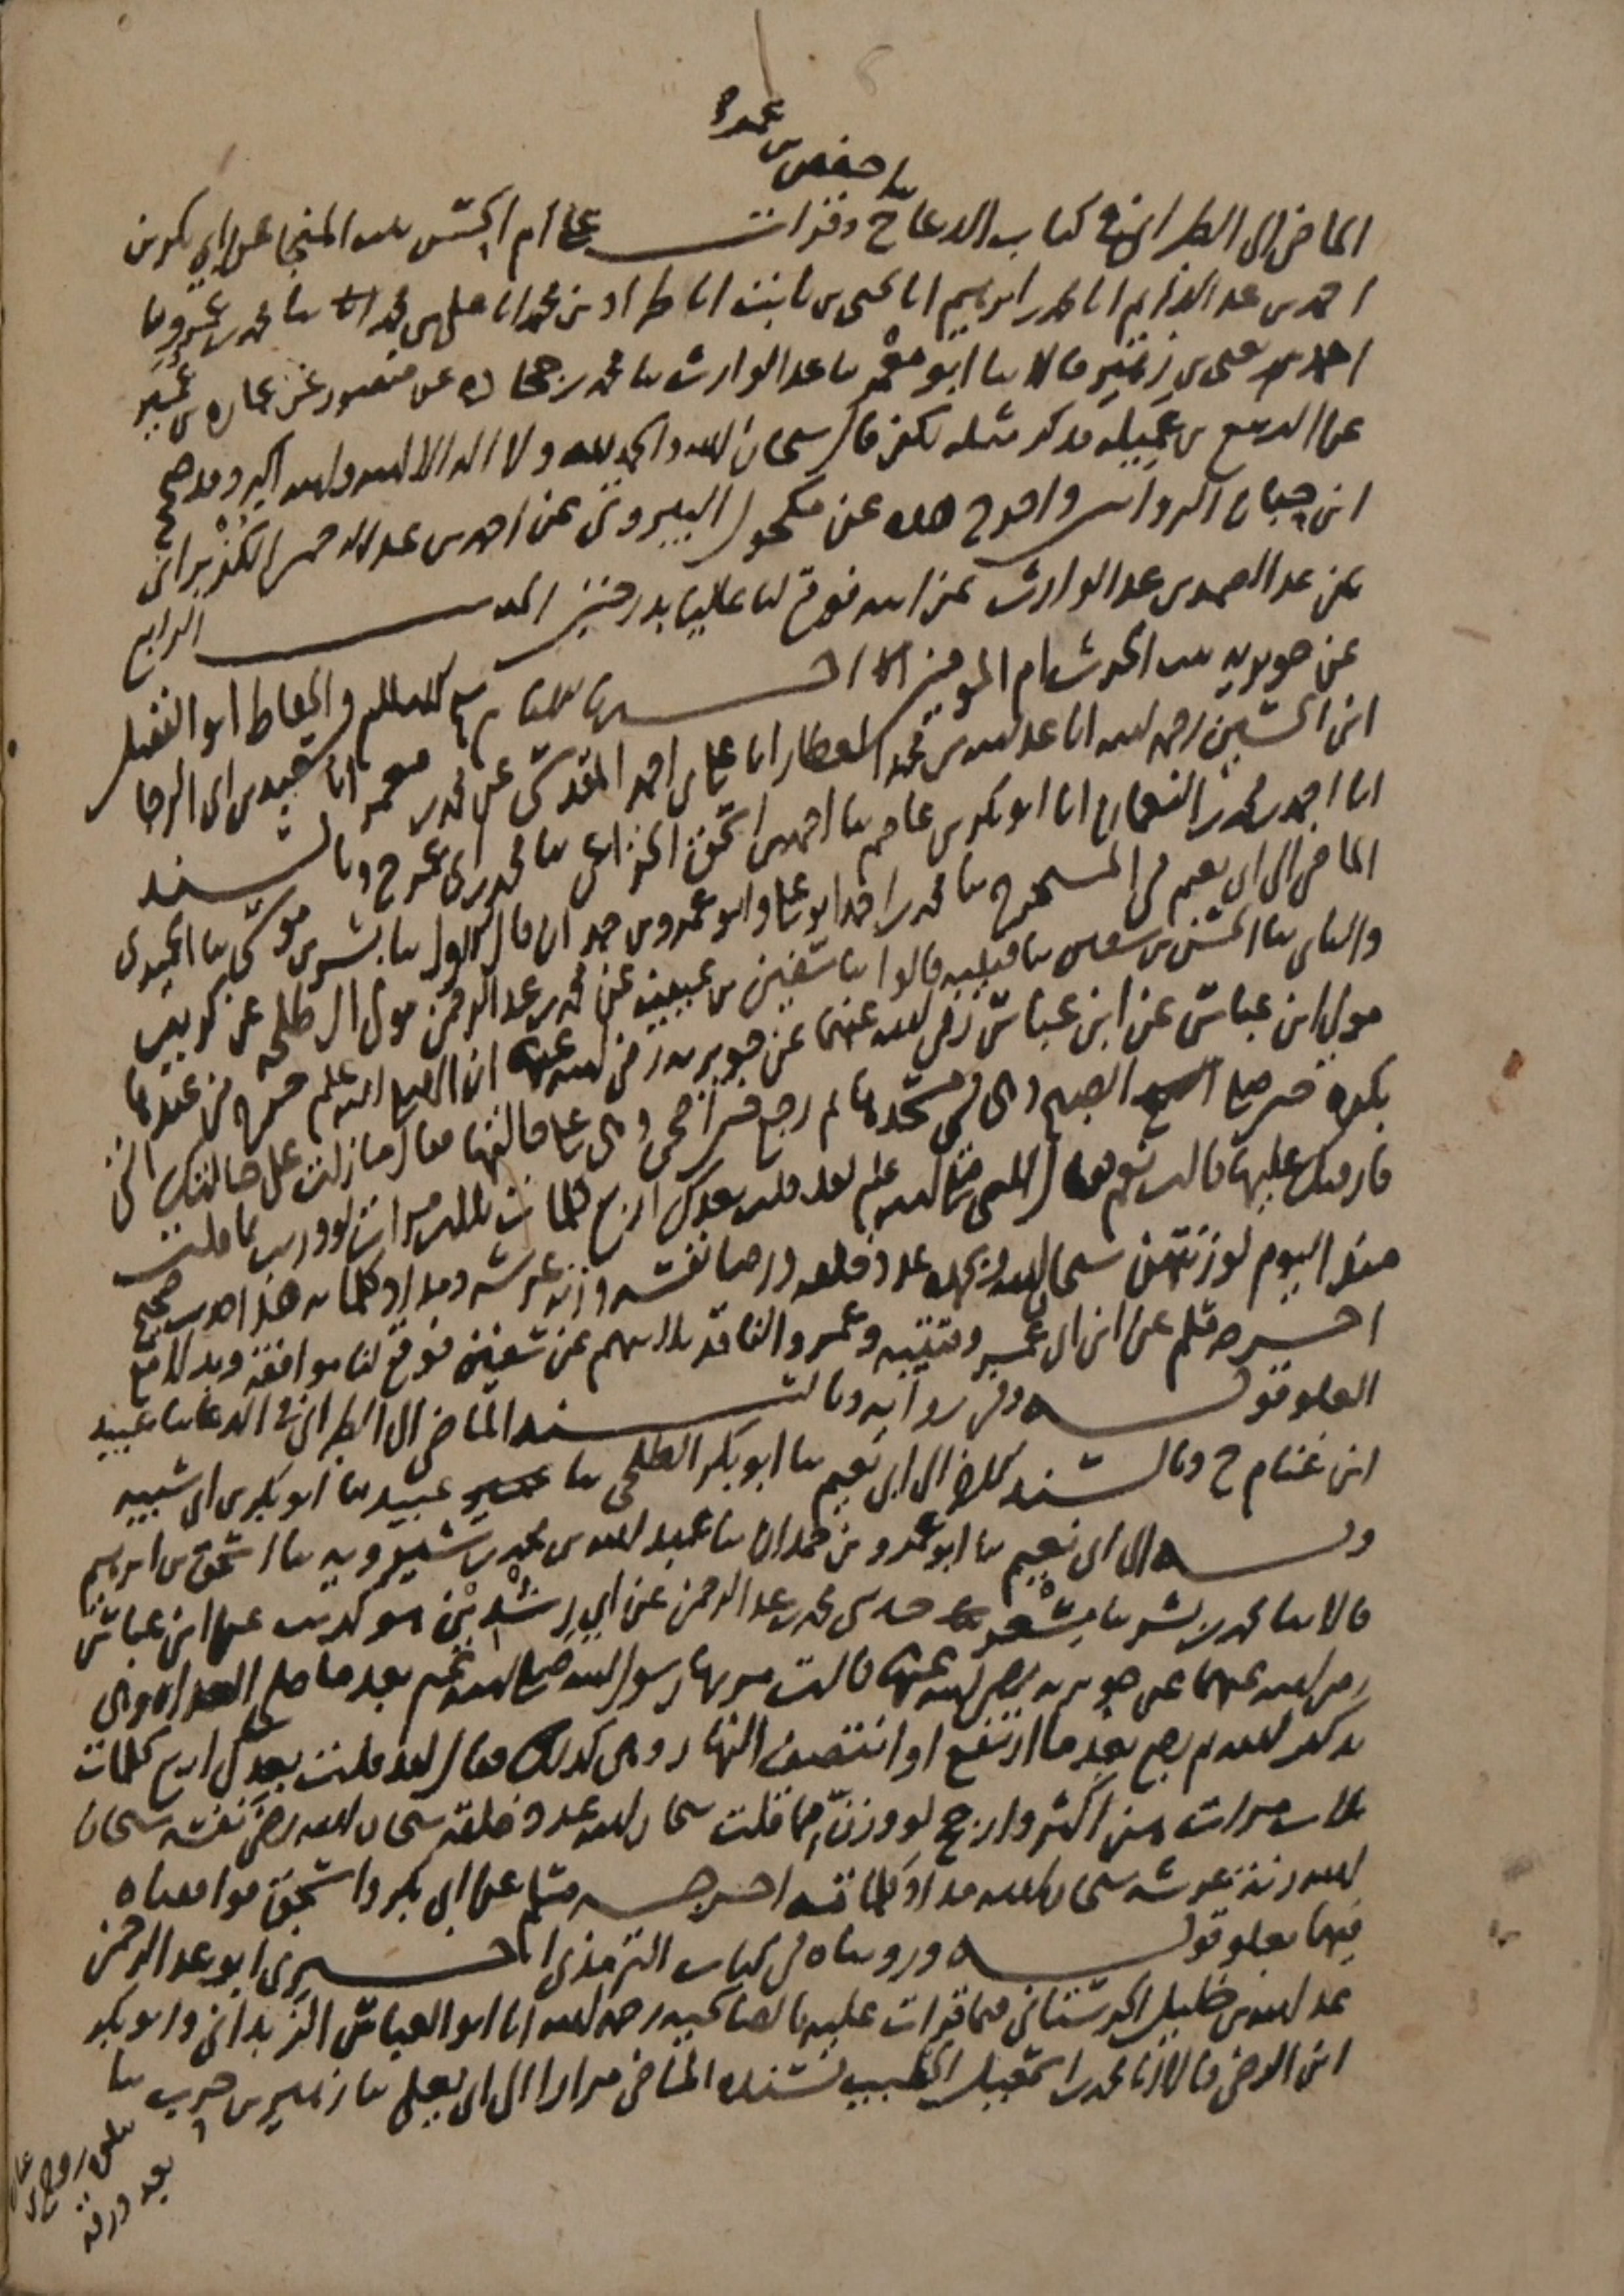 ثنا حفص بن عمر
الماضي الى الطبراني في كتاب الدعا ح وقرات على ام الحسن بنت المنجا عن ابي بكر بن
احمد بن عبد الدايم انا محمد بن ابراهيم انا يحيى بن ثابت انا طراد بن محمد انا علي بن محمد انا ثنا محمد بن عمرو ثنا
احمد بن يحيى بن زهير قالا ثنا ابو معمر ثنا عبد الوارث ثنا محمد بن جحاده عن منصور عن عماره بن عمير
عن الربيع بن عميله فذكر مثله لكن قال سبحان الله والحمد لله ولا اله الا الله والله اكبر وقد صحح
ابن حبان الروايتين واخرج هذه عن مكحول البيروتي عن احمد بن عبد الرحمن الكزبراني
عن عبد الصمد بن عبد الوارث عن ابيه فوقع لنا عاليا بدرجتين الحديث الرابع
عن جويريه بنت الحرث ام المومنين اخبرنا شيخ الاسلام الحافظ ابو الفضل
ابن الحسين رحمه الله انا عبد الله بن محمد العطار انا علي بن احمد المقدسي عن محمد بن معمر انا سعيد بن ابي الرجا
انا احمد بن محمد بن النعمان انا ابو بكر بن عاصم ثنا احمد بن اسحق الخزاعي ثنا محمد بن ابي عمر ح وبالسند
الماضي الى ابي نعيم في المستخرج ثنا محمد بن احمد ابو علي وابو عمرو بن حمدان قال الاول ثنا بشر بن موسى ثنا الحميدي
والثاني ثنا الحسن بن سفين ثنا قتيبه قالوا ثنا سفين بن عيينه عن محمد بن عبد الرحمن مولى ال طلحه عن كريب
مولى ابن عباس عن ابن عباس رضي الله عنهما عن جويريه رضي الله عنها ان النبي صلى الله عليه وسلم خرج من عندها
بكره حين صلى الصبح وهي في مسجدها ثم رجع حين اضحى وهي على حالتها فقال ما زلت على حالتك التي
فارقتك عليها قالت نعم فقال النبي صلى الله عليه وسلم لقد قلت بعدك اربع كلمات ثلاث مرات لو وزنت بما قلت
منذ اليوم لوزنتهن سبحان الله وبحمده عدد خلقه ورضا نفسه وزنه عرشه ومداد كلماته هذا حديث صحيح
اخرجه مسلم عن ابن ابي عمر وقتيبه وعمرو الناقد ثلاثتهم عن سفين فوقع لنا موافقه وبدلا مع
العلو قوله وفي روايه وبالسند الماضي الى الطبراني في الدعا ثنا عبيد
ابن غنام ح وبالسند الماضي الى ابي نعيم ثنا ابو بكر الطلحي ثنا عبيد ثنا ابو بكر بن ابي شيبه
وبه الى ابي نعيم ثنا ابو عمرو بن حمدان ثنا عبد الله بن محمد بن شيرويه ثنا اسحق بن ابراهيم
قالا ثنا محمد بن بشر ثنا مسعر حدثني محمد بن عبد الرحمن عن ابي رشدين هو كريب عن ابن عباس
رضي الله عنهما عن جويريه رضي الله عنها قالت مر بها رسول الله صلى الله عليه وسلم بعد ما صلى الغداه وهي
تذكر الله ثم رجع بعد ما ارتفع او انتصف النهار وهي كذلك فقال لقد قلت بعدك اربع كلمات
ثلاث مرات هن اكثر وارجح لو وزن مما قلت سبحان الله عدد خلقه سبحان الله رضى نفسه سبحان
الله زنة عرشه سبحان الله مداد كلماته اخرجه مسلم عن ابي بكر واسحق فوافقناه
فيهما بعلو قوله وروينا في كتاب الترمذي اخبرني ابو عبد الرحمن
عبد الله بن خليل الحرستاني فيما قرات عليه بالصالحيه رحمه الله انا ابو العباس الزبداني وابو بكر
ابن الرضي قالا انا محمد بن اسمعيل الخطيب بسنده الماضي مرارا الى ابي يعلى ثنا زهير بن حرب ثنا
روح بن
بعد ورقه